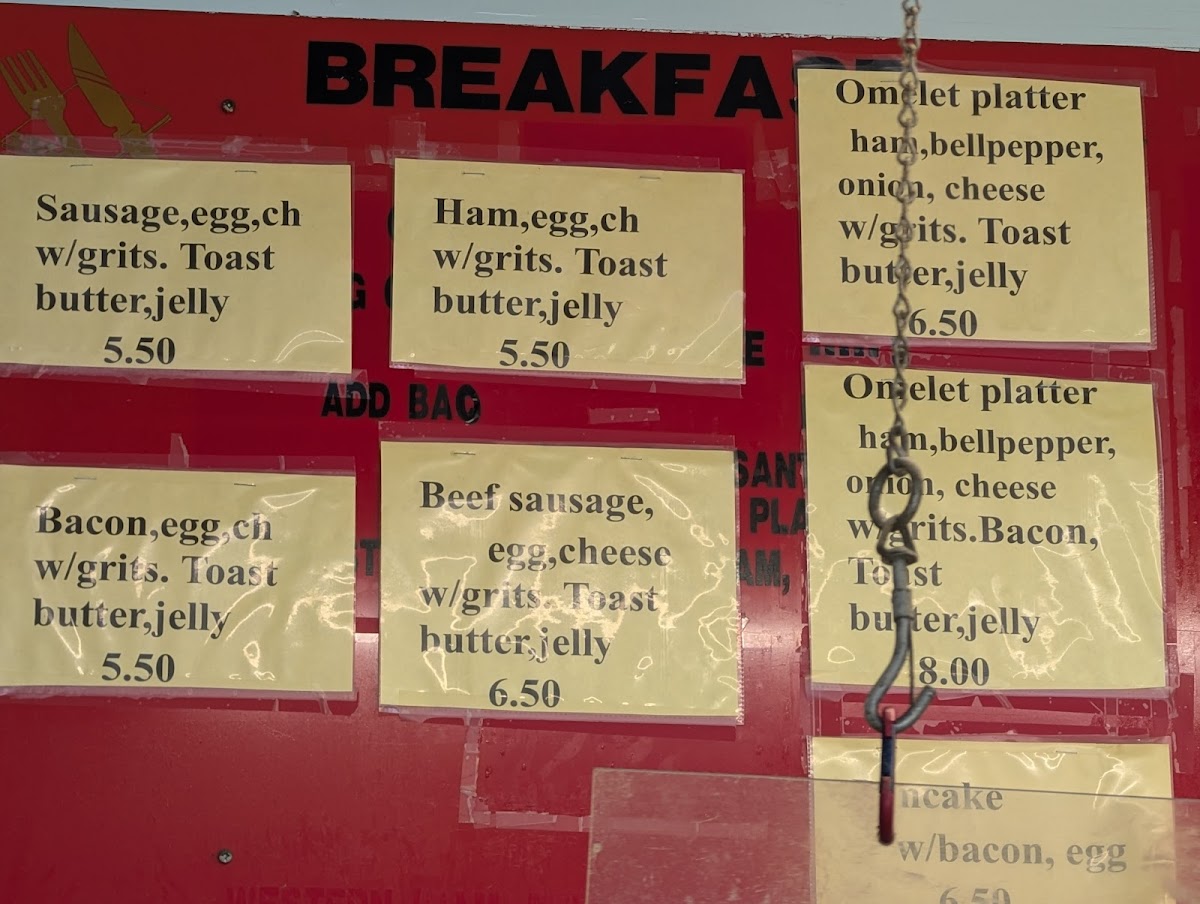 BREAKFAS
Sausage,egg,ch
w/grits. Toast
butter,jelly
5.50
Ham,egg,ch
w/grits. Toast
butter,jelly
5.50
Omelet platter
ham,bellpepper,
onion, cheese
w/grits. Toast
butter,jelly
6.50
ADD BAC
Bacon,egg,ch
w/grits. Toast
butter,jelly
5.50
Beef sausage,
egg,cheese
w/grits. Toast
butter,jelly
6.50
Omelet platter
ham,bellpepper,
onion, cheese
w/grits.Bacon,
Toast
butter,jelly
8.00
SAN
PLA
AM,
ncake
w/bacon, egg
6.50
WESTERN